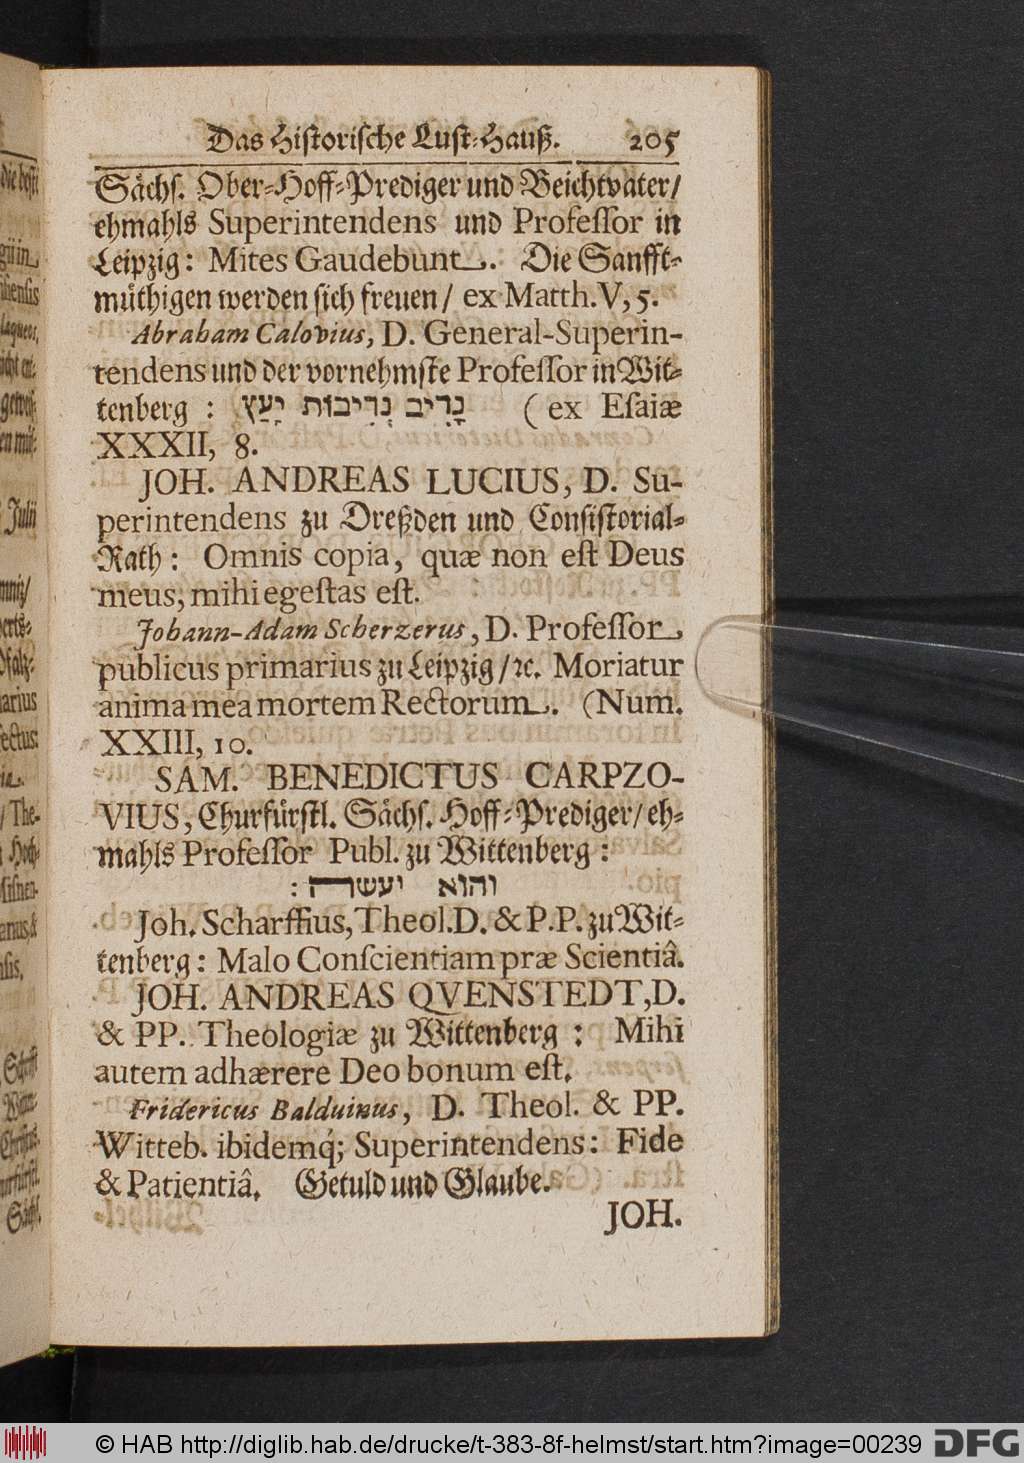 Das Historische Lust-Hauß. 205
Sächs. Ober-Hoff-Prediger und Beichtvater/
ehmahls Superintendens und Professor in
Leipzig: Mites Gaudebunt. Die Sanfft-
müthigen werden sich freuen/ ex Matth. V, 5.
Abraham Calovius, D. General-Superin-
tendens und der vornehmste Professor in Wit-
tenberg : נָדִיב נְדִיבוֹת יָעָץ ( ex Esaiæ
XXXII, 8.
JOH. ANDREAS LUCIUS, D. Su-
perintendens zu Dreßden und Consistorial-
Rath: Omnis copia, quæ non est Deus
meus, mihi egestas est.
Johann-Adam Scherzerus, D. Professor
publicus primarius zu Leipzig/ ꝛc. Moriatur
anima mea mortem Rectorum. (Num.
XXIII, 10.
SAM. BENEDICTUS CARPZO-
VIUS, Churfürstl. Sächs. Hoff-Prediger/ eh-
mahls Professor Publ. zu Wittenberg:
והוא יעשה:
Joh. Scharffius, Theol. D. & P.P. zu Wit-
tenberg: Malo Conscientiam præ Scientiâ.
JOH. ANDREAS QVENSTEDT, D.
& PP. Theologiæ zu Wittenberg: Mihi
autem adhærere Deo bonum est.
Fridericus Balduinus, D. Theol. & PP.
Witteb. ibidemq́; Superintendens: Fide
& Patientiâ. Getuld und Glaube.
JOH.
© HAB http://diglib.hab.de/drucke/t-383-8f-helmst/start.htm?image=00239 DFG